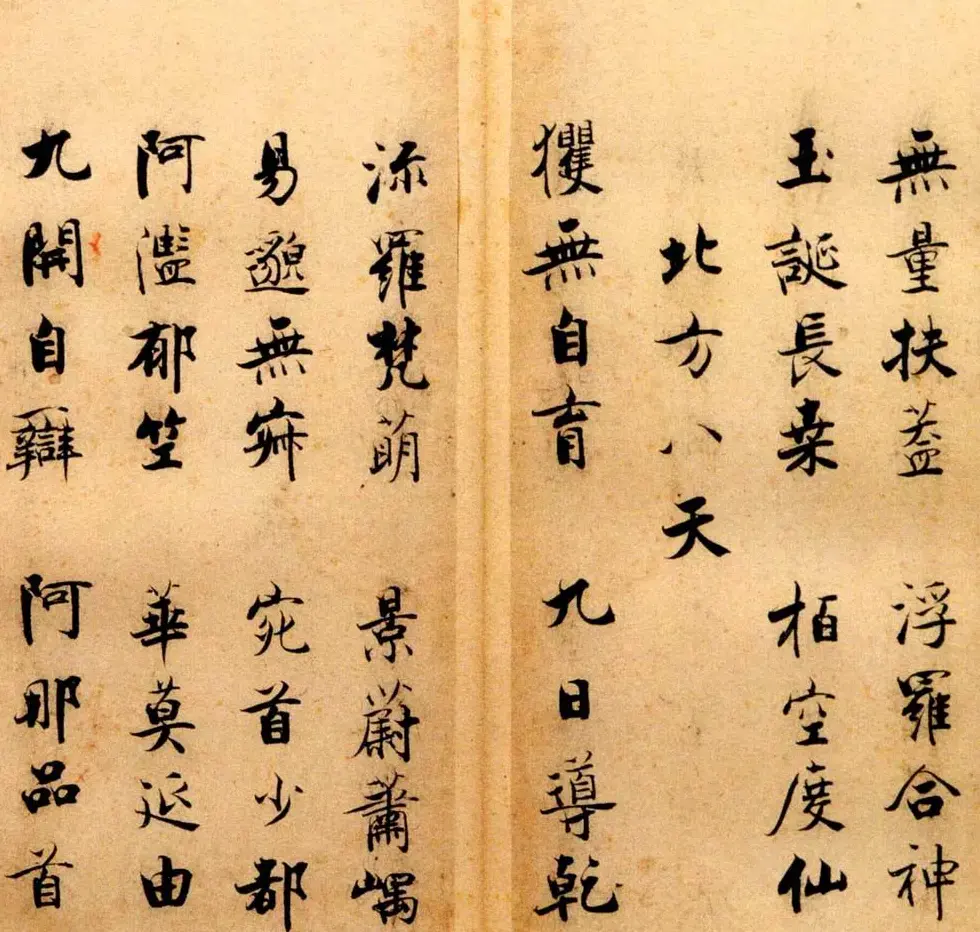 無量扶蓋　浮羅合神
玉誕長桒　柏空度仙
北方八天
玃無自育　九日導乾
流羅梵萌　景蔚蕭嵎
易邈無寂　宛首少都
阿濫郁竺　華莫延由
九開自辯　阿那品首